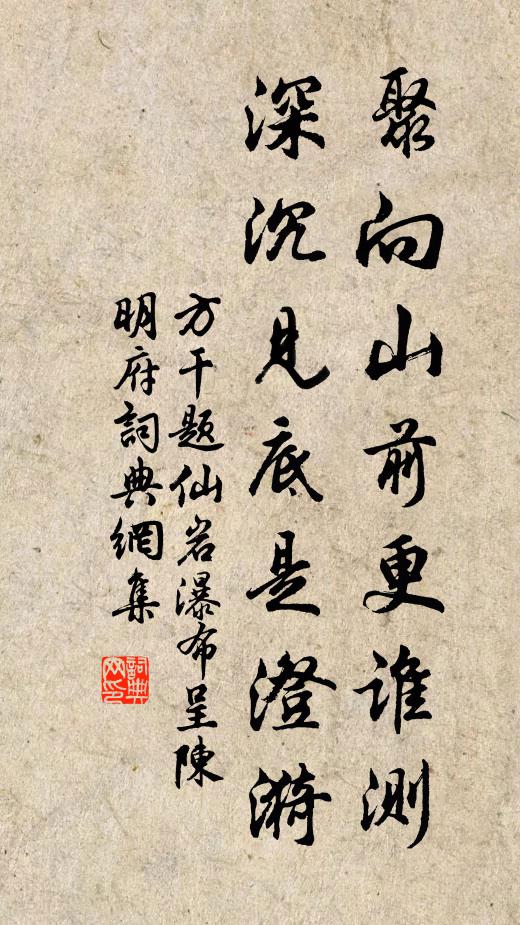 聚向山前更谁测
深沉见底是澄漪
方干题仙岩瀑布呈陳
明府詞典網集
詞典
网印